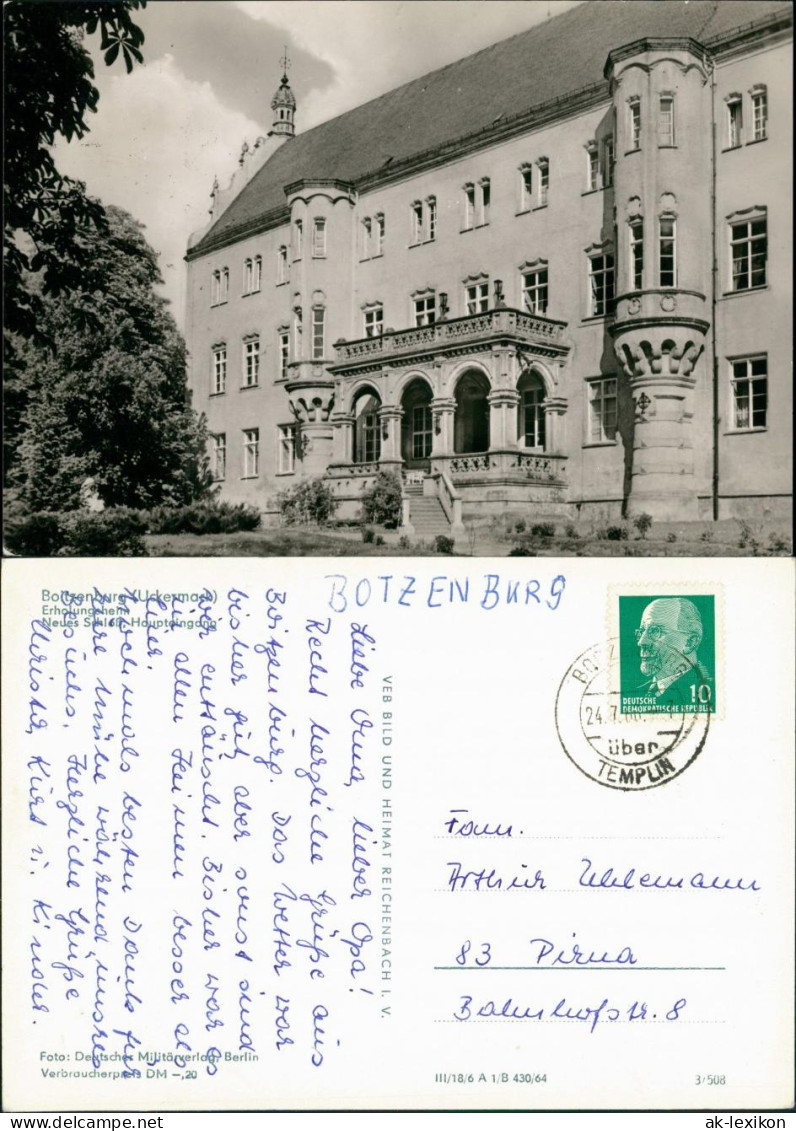 Boitzenburg (Uckermark)
Erholungsheim
Neues Schloß, Haupteingang
BOTZENBURG
Liebe Oma, lieber Opa!
Recht herzliche Grüße aus
Boitzenburg. Das Wetter war
bisher gut, aber sonst sind
wir enttäuscht. Bisher war es
in allen Heimen besser als
hier.
Nochmals besten Dank für
Eure Mühe während unsres
Besuchs. Herzliche Grüße
Christa, Kurt u. Kinder.
VEB BILD UND HEIMAT REICHENBACH I. V.
DEUTSCHE
DEMOKRATISCHE REPUBLIK
10
24.7.
über
TEMPLIN
Fam.
Arthur Uhlemann
83 Pirna
Bahnhofstr. 8
Foto: Deutscher Militärverlag, Berlin
Verbraucherpreis DM –,20
III/18/6 A 1/B 430/64
3/508
ak-lexikon.com